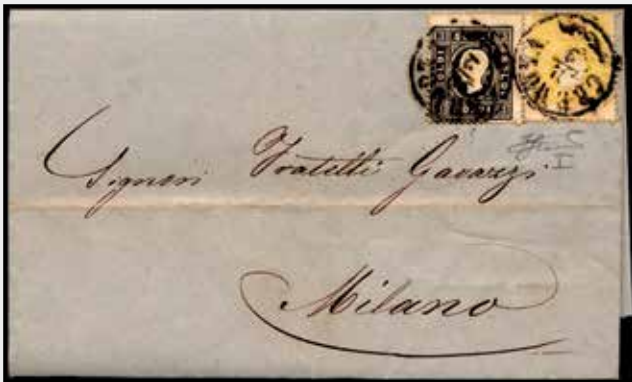 CREMONA
Signori Fratelli Gavazzi
Milano